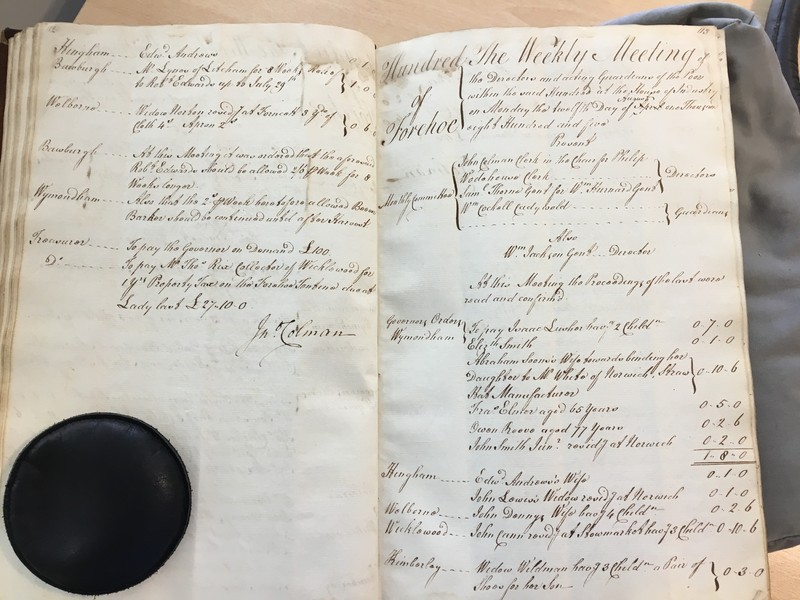 Hingham Edwd. Andrews 0 1
Bawburgh Mr Lynn of Litcham for 8 Weeks due of
to Robt. Edwards up to July 29th 1-0
Welborne Widow resid'g at Forncett 3 Yds of
Cloth 4s Apron 2s 0-6
Bawburgh At this Meeting it was ordered that the aforesaid
Robt. Edwards should be allowed 2/6 pr Week for 8
Weeks longer
Wymondham Also that the 2s pr Week heretofore allowed
Barker should be continued until after Harvest
Treasurer To pay the Governor on Demand £100
Do. To pay Mr Thos. Rix Collector of Wicklewood for
1 Yrs Property Tax on the Forehoe due at
Lady last £27-10-0
Jn. Colman
113
Hundred of Forehoe
The Weekly Meeting of
the Directors and acting Guardians of the Poor
within the said Hundred at the House of Industry
on Monday the twelfth Day of August One Thousand
eight Hundred and
Present
Monthly Committee
John Colman Clerk in the Chair for Philip
Wodehouse Clerk Directors
Saml. Thorne Gent. for Wm. Gent
Wm. Cadywold
Guardians
Also
Wm. Jackson Gent. Director
At this Meeting the Proceedings of the last were
read and confirm'd
Governors Orders
Wymondham To pay Isaac Lusher hav'g 2 Childn. 0-7-0
Elizth Smith 0-1-0
Abraham Wife towards binding her
Daughter to Mr White of Norwich Straw 0-10-6
Hat Manufacturer
Fras. Elmer aged 65 Years 0-5-0
Owen Reeve aged 77 Years 0-2-6
John Smith Junr. resid'g at Norwich 0-2-0
1-8-0
Hingham Edwd. Andrews's Wife 0-1-0
John Lowes's Widow resid'g at Norwich 0-1-0
Welborne John Denny's Wife hav'g 4 Childn. 0-2-6
Wicklewood John Cann resid'g at Stowmarket hav'g 3 Childn. 0-10-6
Kimberley Widow Wildman hav'g 3 Childn. a Pair of
Shoes for her Son 0-3-0